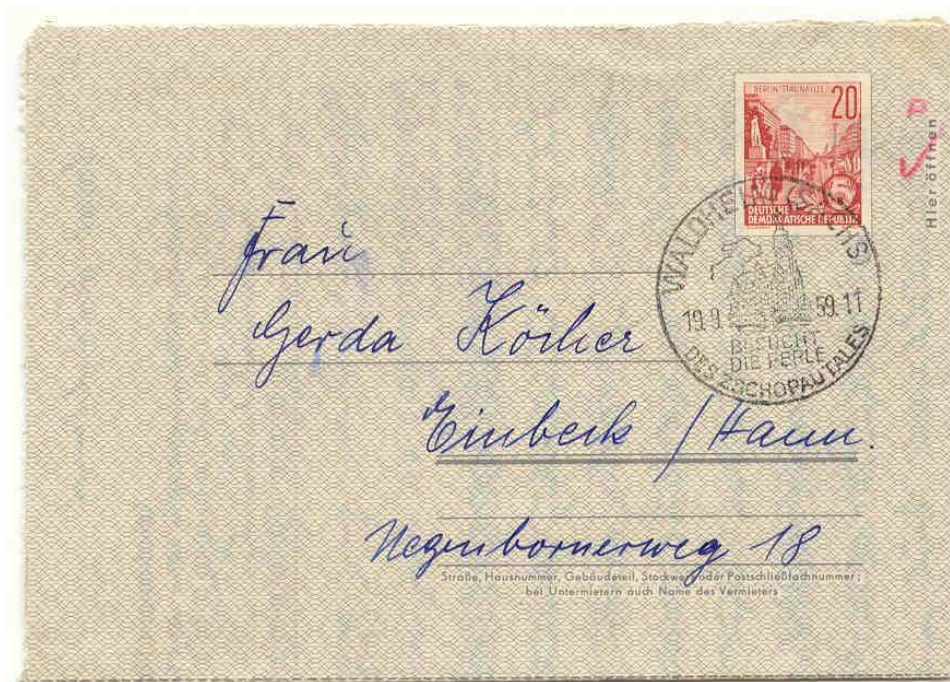 BERLIN STALINALLEE
20
5
DEUTSCHE
DEMOKRATISCHE REPUBLIK
Hier öffnen
WALDHEIM (SACHS)
19.9. 59.11
BESUCHT
DIE PERLE
DES ZSCHOPAUTALES
Frau
Gerda Köcher
Einbeck / Hann.
Negenbornerweg 18
Straße, Hausnummer, Gebäudeteil, Stockwerk oder Postschließfachnummer;
bei Untermietern auch Name des Vermieters